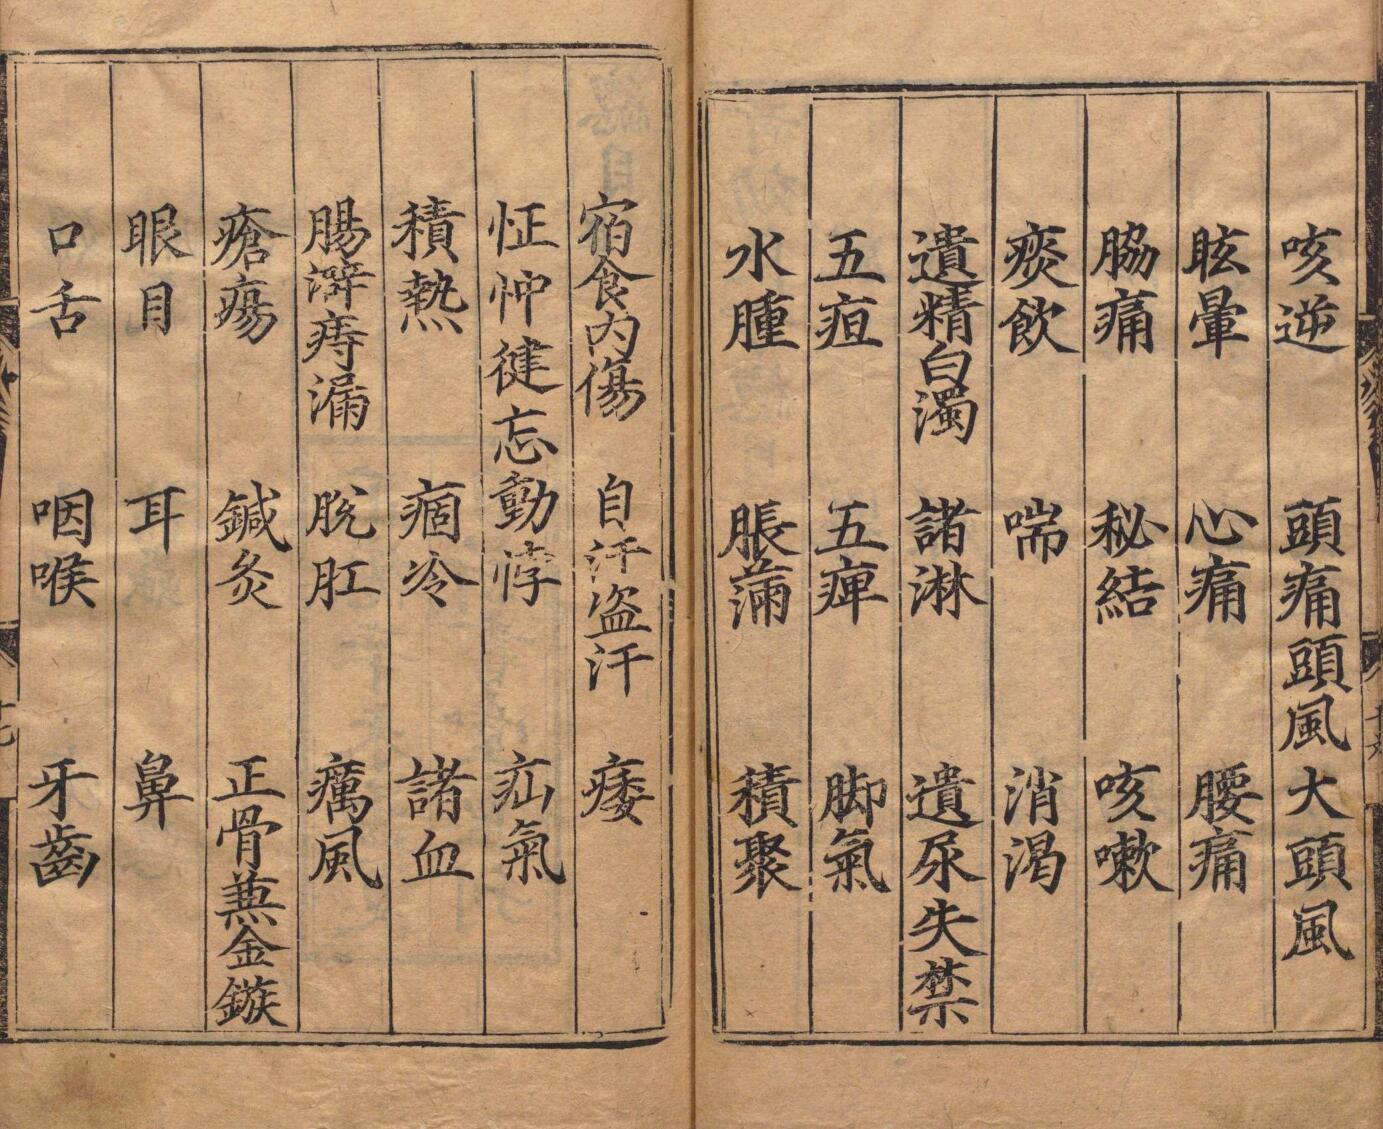 咳逆 頭痛頭風大頭風
眩暈 心痛 腰痛
脇痛 秘結 咳嗽
痰飲 喘 消渴
遺精白濁 諸淋 遺尿失禁
五疸 五痺 脚氣
水腫 脹滿 積聚
宿食內傷 自汗盗汗 痿
怔忡健忘動悸 疝氣
積熱 痼冷 諸血
腸澼痔漏 脫肛 癘風
瘡瘍 鍼灸 正骨兼金鏃
眼目 耳 鼻
口舌 咽喉 牙齒